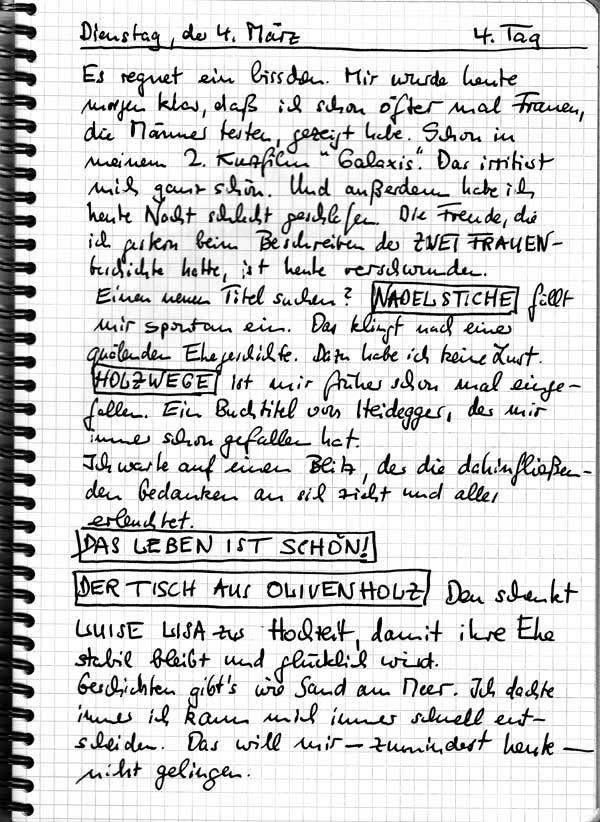 Dienstag, der 4. März 4. Tag
Es regnet ein bisschen. Mir wurde heute
morgen klar, daß ich schon öfter mal Frauen,
die Männer testen, gezeigt habe. Schon in
meinem 2. Kurzfilm "Galaxis". Das irritiert
mich ganz schön. Und außerdem habe ich
heute Nacht schlecht geschlafen. Die Freude, die
ich gestern beim Beschreiben der ZWEI FRAUEN-
Geschichte hatte, ist heute verschwunden.
Einen neuen Titel suchen? NADELSTICHE fällt
mir spontan ein. Das klingt nach einer
quälenden Ehegeschichte. Dazu habe ich keine Lust.
HOLZWEGE ist mir früher schon mal einge-
fallen. Ein Buchtitel von Heidegger, der mir
immer schon gefallen hat.
Ich warte auf einen Blitz, der die dahinfließen-
den Gedanken an sich zieht und alles
erleuchtet.
DAS LEBEN IST SCHÖN!
DER TISCH AUS OLIVENHOLZ Den schenkt
LUISE LISA zur Hochzeit, damit ihre Ehe
stabil bleibt und glücklich wird.
Geschichten gibt's wie Sand am Meer. Ich dachte
immer ich kann mich immer schnell ent-
scheiden. Das will mir — zumindest heute —
nicht gelingen.